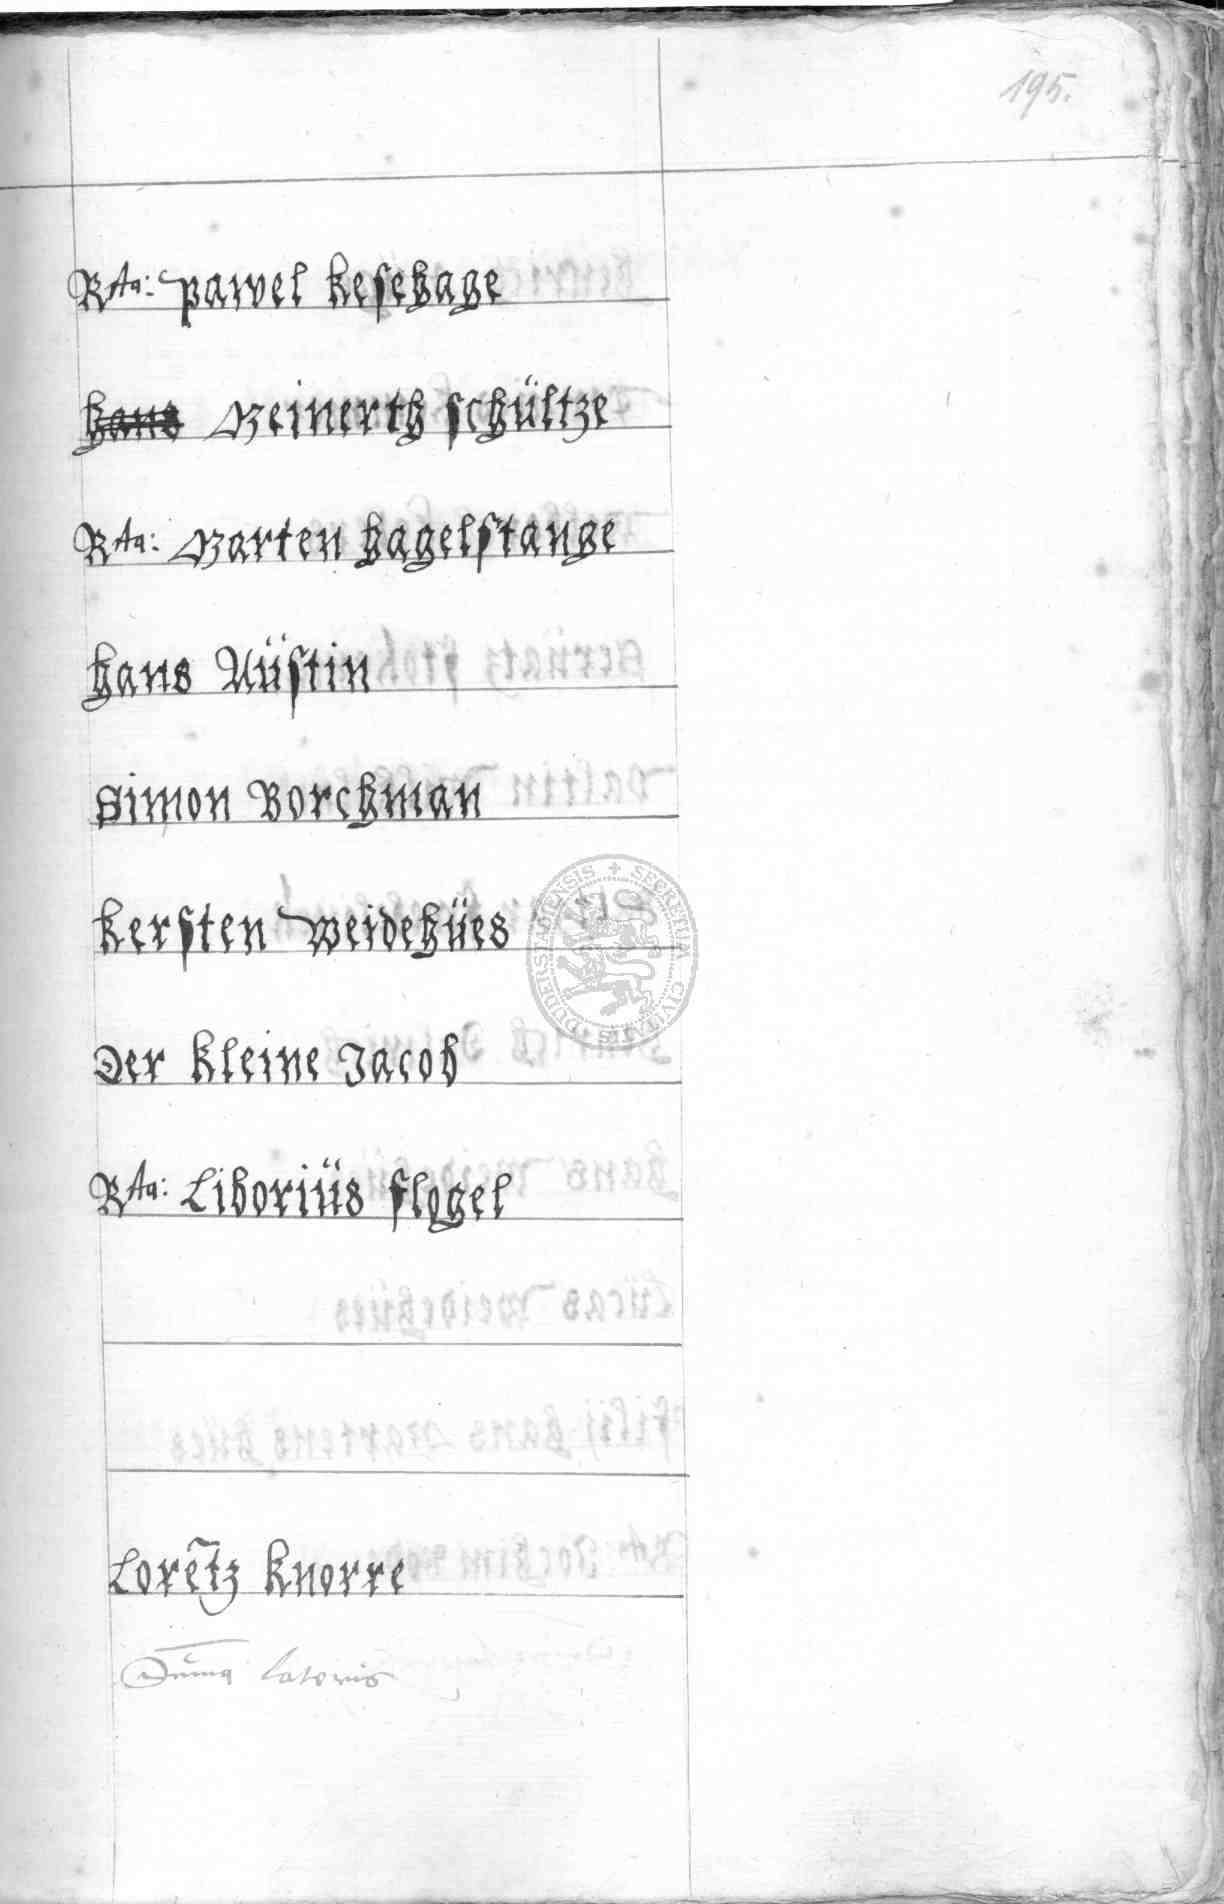 195.
Rta: pawel kesehage
hans Meinerth schültze
Rta: Marten hagelstange
hans Aüstin
Simon Borchman
kersten weidehües
Der kleine Jacob
Rta: Liboriüs flogel
Lorētz knorre
Suma Lateris
SECRETUM CIVITATIS DUDERSTADIENSIS